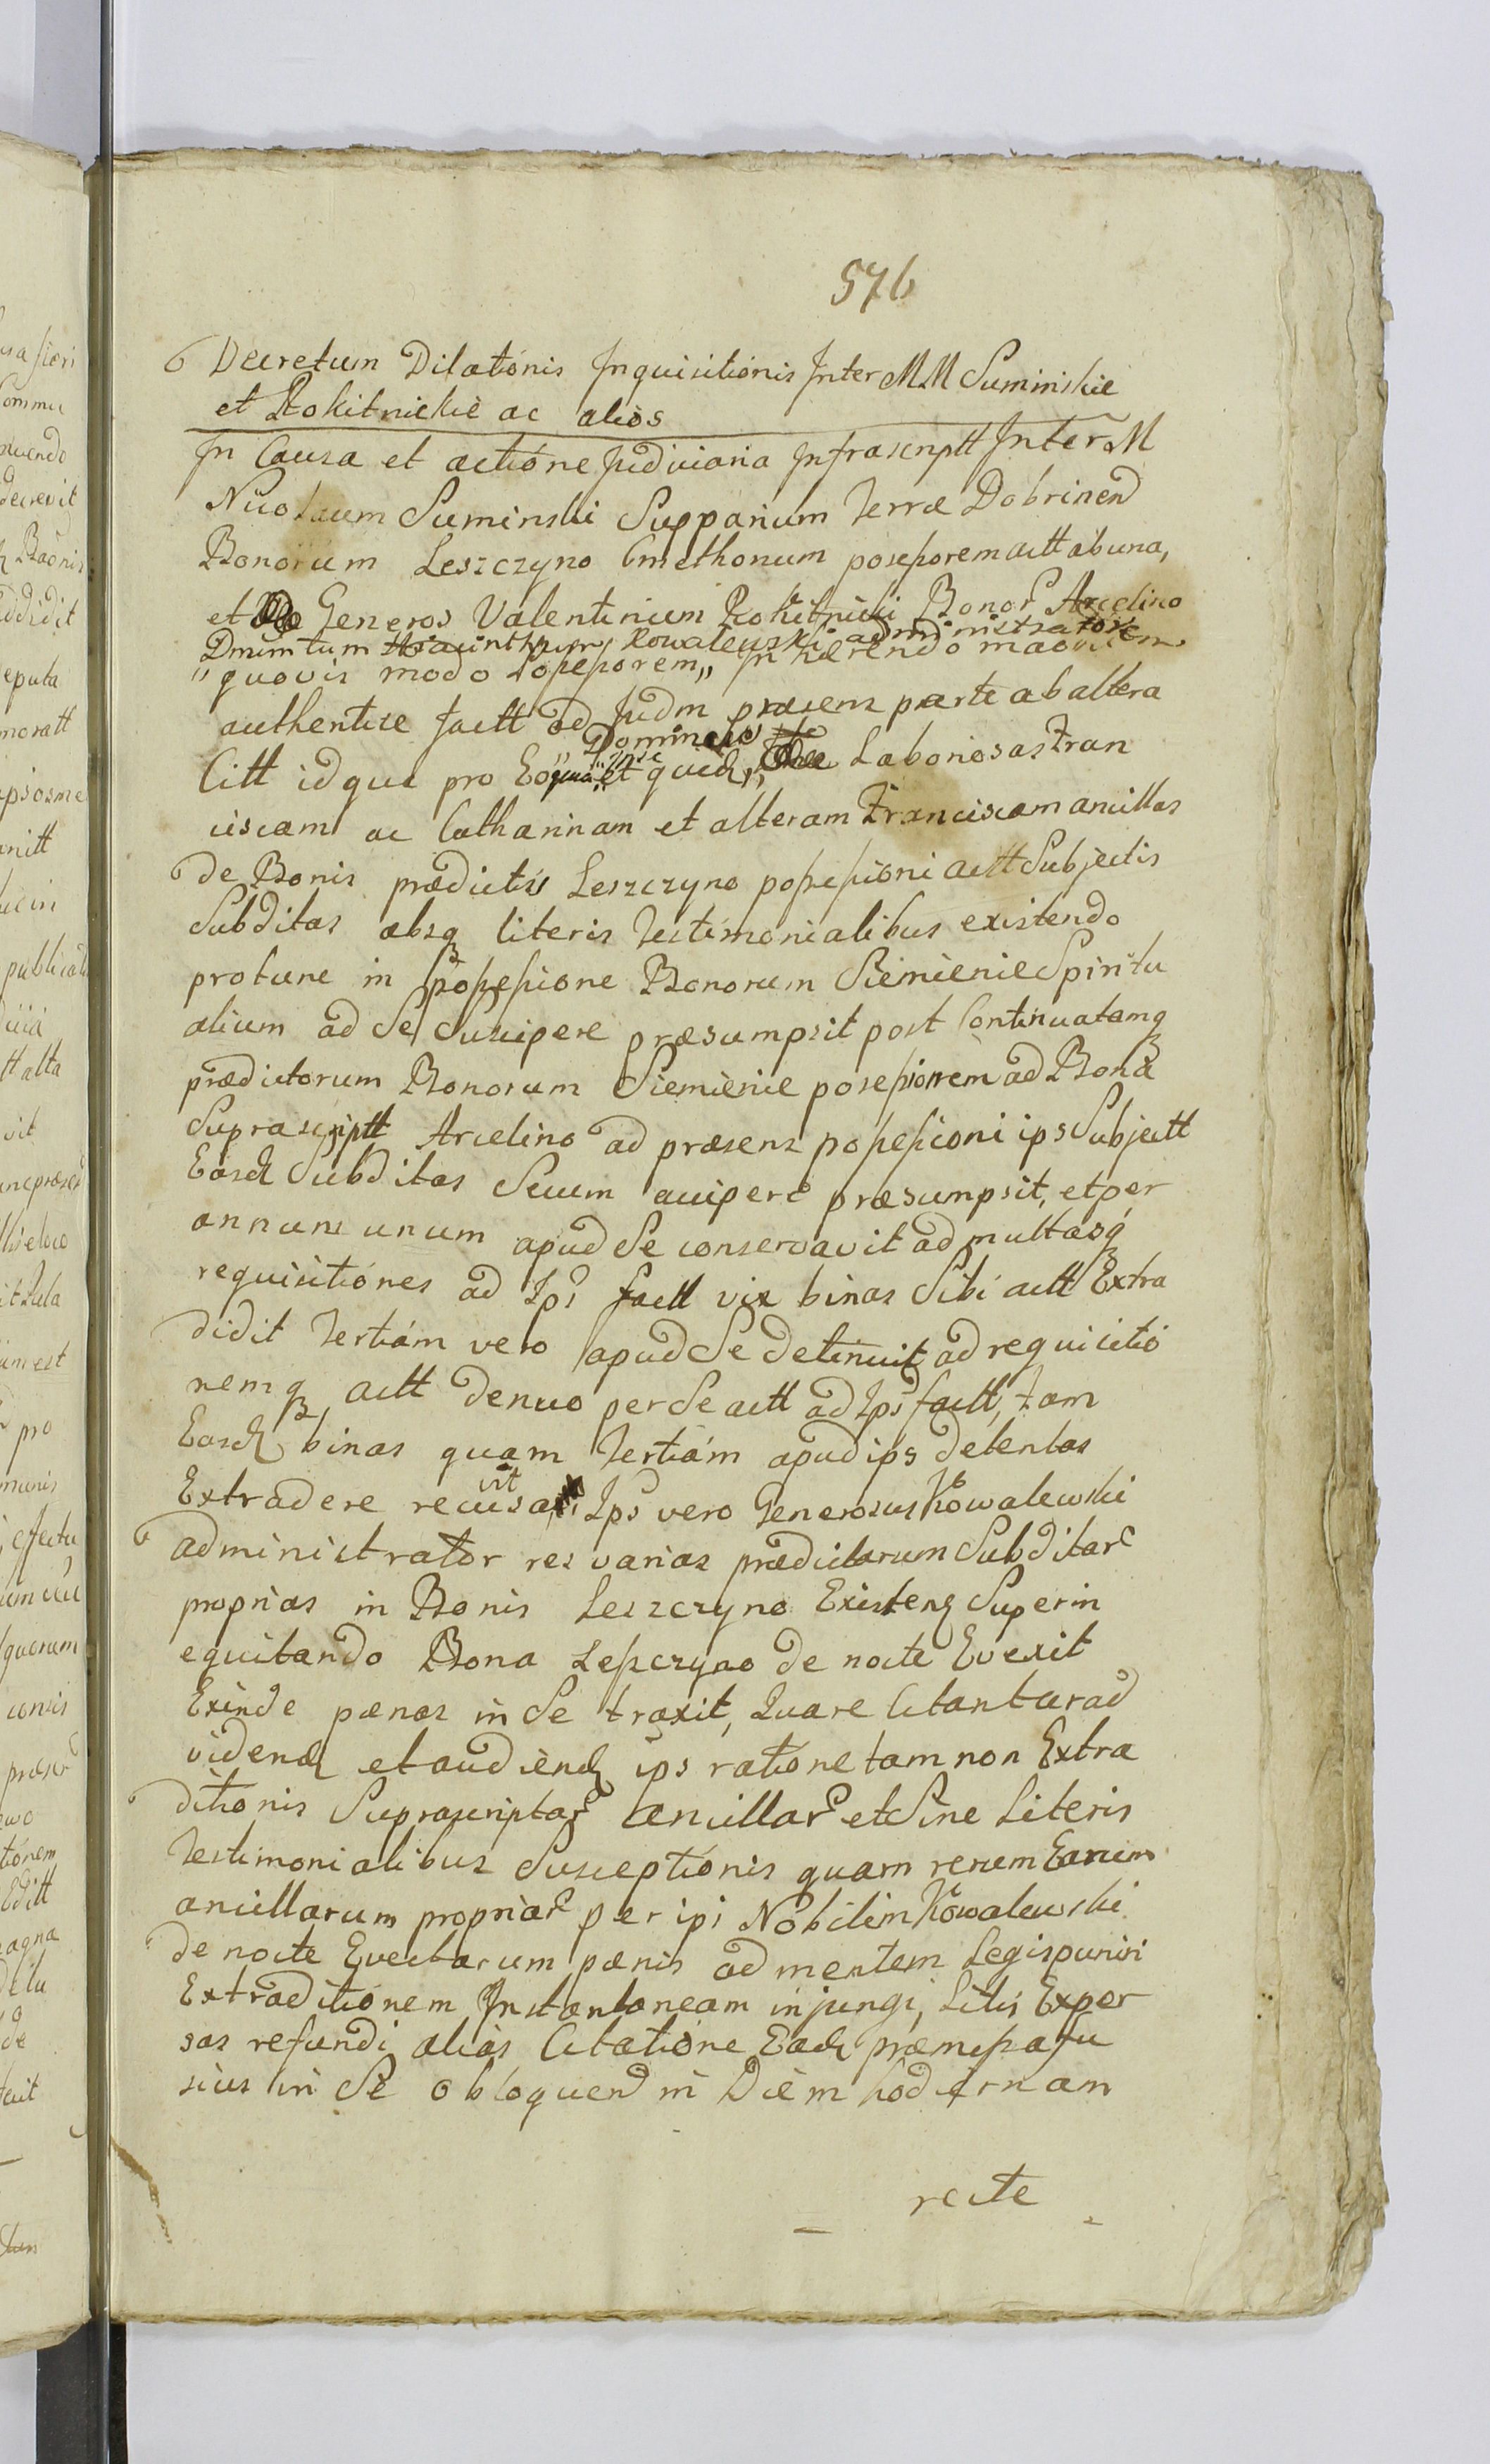 576
Decretum Dilationis Inquisitionis Inter MM Suminskie
et Rokitnickie ac alios
In Causa et actione Judiciaria Infrascriptt Inter M
Nicolaum Suminski Supparium Terræ Dobrinen
Bonorum Leszczyno Cmethonum possessorem actt ab una,
et Generos Valentinum Rokitnicki Bonor Arcelino
Dnum tum Hiacinthum Kowalewski administratorem
"quovis modo Possessorem" Inhærendo
authentice factt ad Judm præsens parte ab altera
Dominus
Citt idque pro Eo quia ipse Laboriosas Fran
ciscam ac Catharinam et alteram Franciscam ancillas
de Bonis prædictis Leszczyno possessioni actt Subjectis
Subditas absq literis Testimonialibus existendo
protunc in possessione Bonorum Siemienie Spiritu
alium ad Se Suscipere præsumpsit post Continuatamq
prædictorum Bonorum Siemienie possessionem ad Bona
Suprascriptt Arcelino ad præsens possessioni ips Subjectt
Easd Subditas Secum accipere præsumpsit, et per
annum unum apud Se conservavit ad multasq
requisitiones ad Ips factt vix binas Sibi actt Extra
didit Tertiam vero apud Se detinuit ad requisitio
nemq actt denuo per Se actt ad Ips factt, tam
Easd binas quam Tertiam apud ips detentas
vit
Extradere recusa Ips vero Generosus Kowalewski
administrator res varias prædictarum Subditar
proprias in Bonis Leszczyno Existen Superin
equitando Bona Leszczyno de nocte Evexit
Exinde pænas in Se traxit, Quare Citantur ad
videnđ et audienđ ips ratione tam non Extra
ditionis Suprascriptar ancillar et Sine Literis
Testimonialibus Susceptionis quam rerum Earum
ancillarum propriar per ips Nobilem Kowalewski
de nocte Evectarum pænis ad mentem Legis puniri
Extraditionem Instantaneam injungi, Litis Expen
sas refundi alias Citatione Ead præmissa fu
sius in Se obloquen in Diem hodiernam
recte